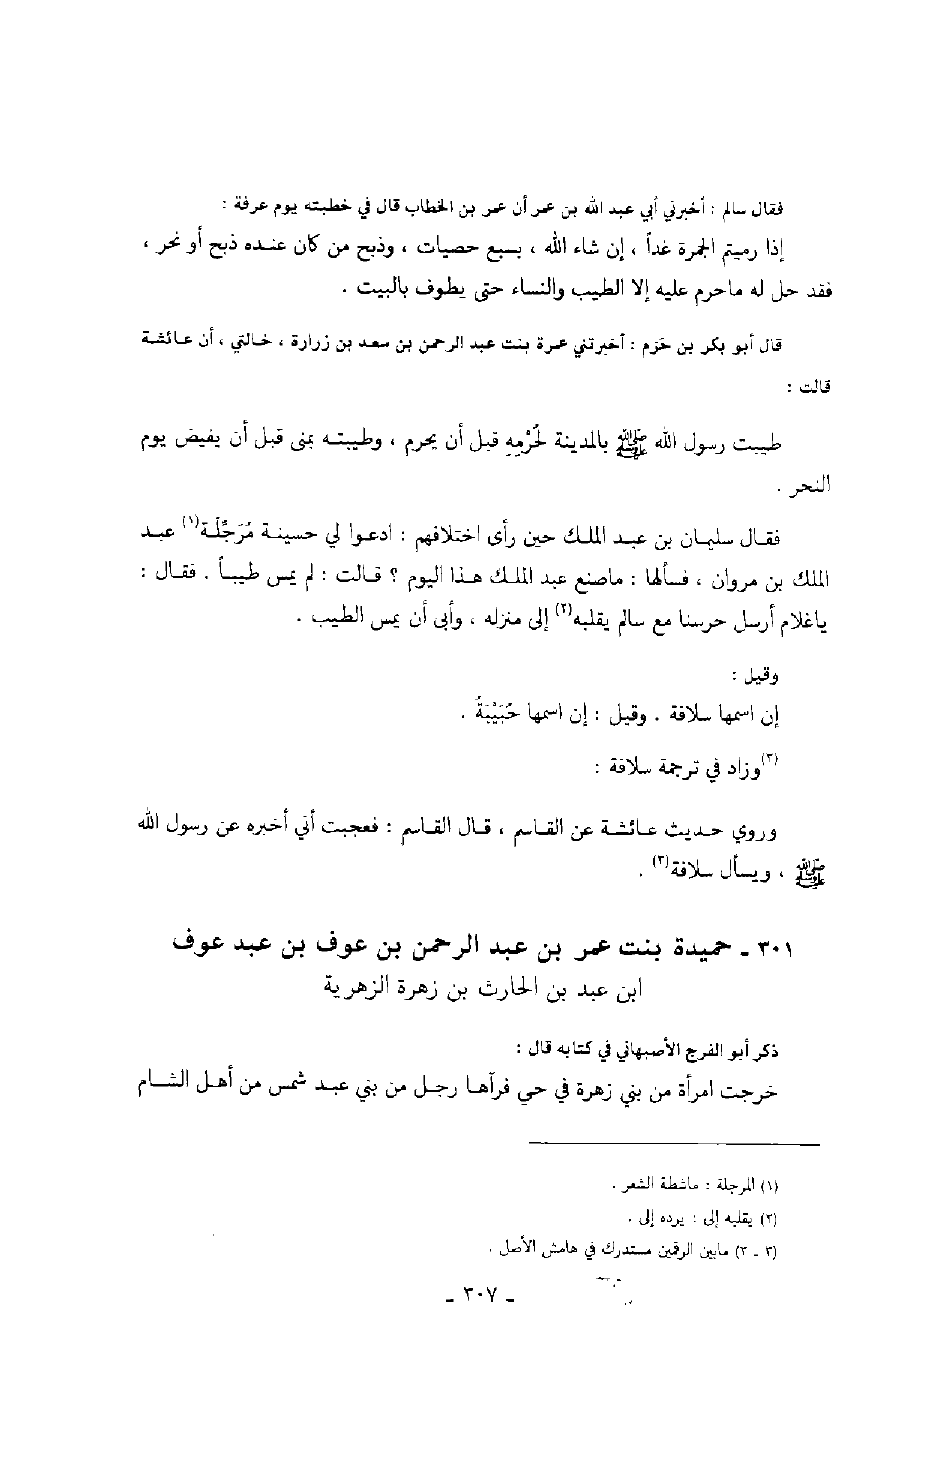 فقال سالم : أخبرني أبي عبد الله بن عمر أن عمر بن الخطاب قال في خطبته يوم عرفة :
إذا رميتم الجمرة غداً ، إن شاء الله ، بسبع حصيات ، وذبح من كان عنده ذبح أو نحر ،
فقد حل له ماحرم عليه إلا الطيب والنساء حتى يطوف بالبيت .
قال أبو بكر بن حَزم : أخبرتني عمرة بنت عبد الرحمن بن سعد بن زرارة ، خالتي ، أن عائشة
قالت :
طيبت رسول الله ﷺ بالمدينة لحُرْمِهِ قبل أن يحرم ، وطيبته بمنى قبل أن يفيض يوم
النحر .
فقال سليمان بن عبد الملك حين رأى اختلافهم : ادعوا لي حسينة مُرَجِّلَة(١) عبد
الملك بن مروان ، فسألها : ماصنع عبد الملك هذا اليوم ؟ قالت : لم يمس طيباً . فقال :
ياغلام أرسل حرسنا مع سالم يقلبه(٢) إلى منزله ، وأبى أن يمس الطيب .
وقيل :
إن اسمها سلافة . وقيل : إن اسمها حُبَيْبَةُ .
(٣)وزاد في ترجمة سلافة :
وروي حديث عائشة عن القاسم ، قال القاسم : فعجبت أني أخبره عن رسول الله
ﷺ ، ويسأل سلافة(٣) .
٣٠١ - حميدة بنت عمر بن عبد الرحمن بن عوف بن عبد عوف
ابن عبد بن الحارث بن زهرة الزهرية
ذكر أبو الفرج الأصبهاني في كتابه قال :
خرجت امرأة من بني زهرة في حي فرآها رجل من بني عبد شمس من أهل الشام
(١) المرجلة : ماشطة الشعر .
(٢) يقلبه إلى : يرده إلى .
(٣ - ٣) مابين الرقمين مستدرك في هامش الأصل .
- ٣٠٧ -